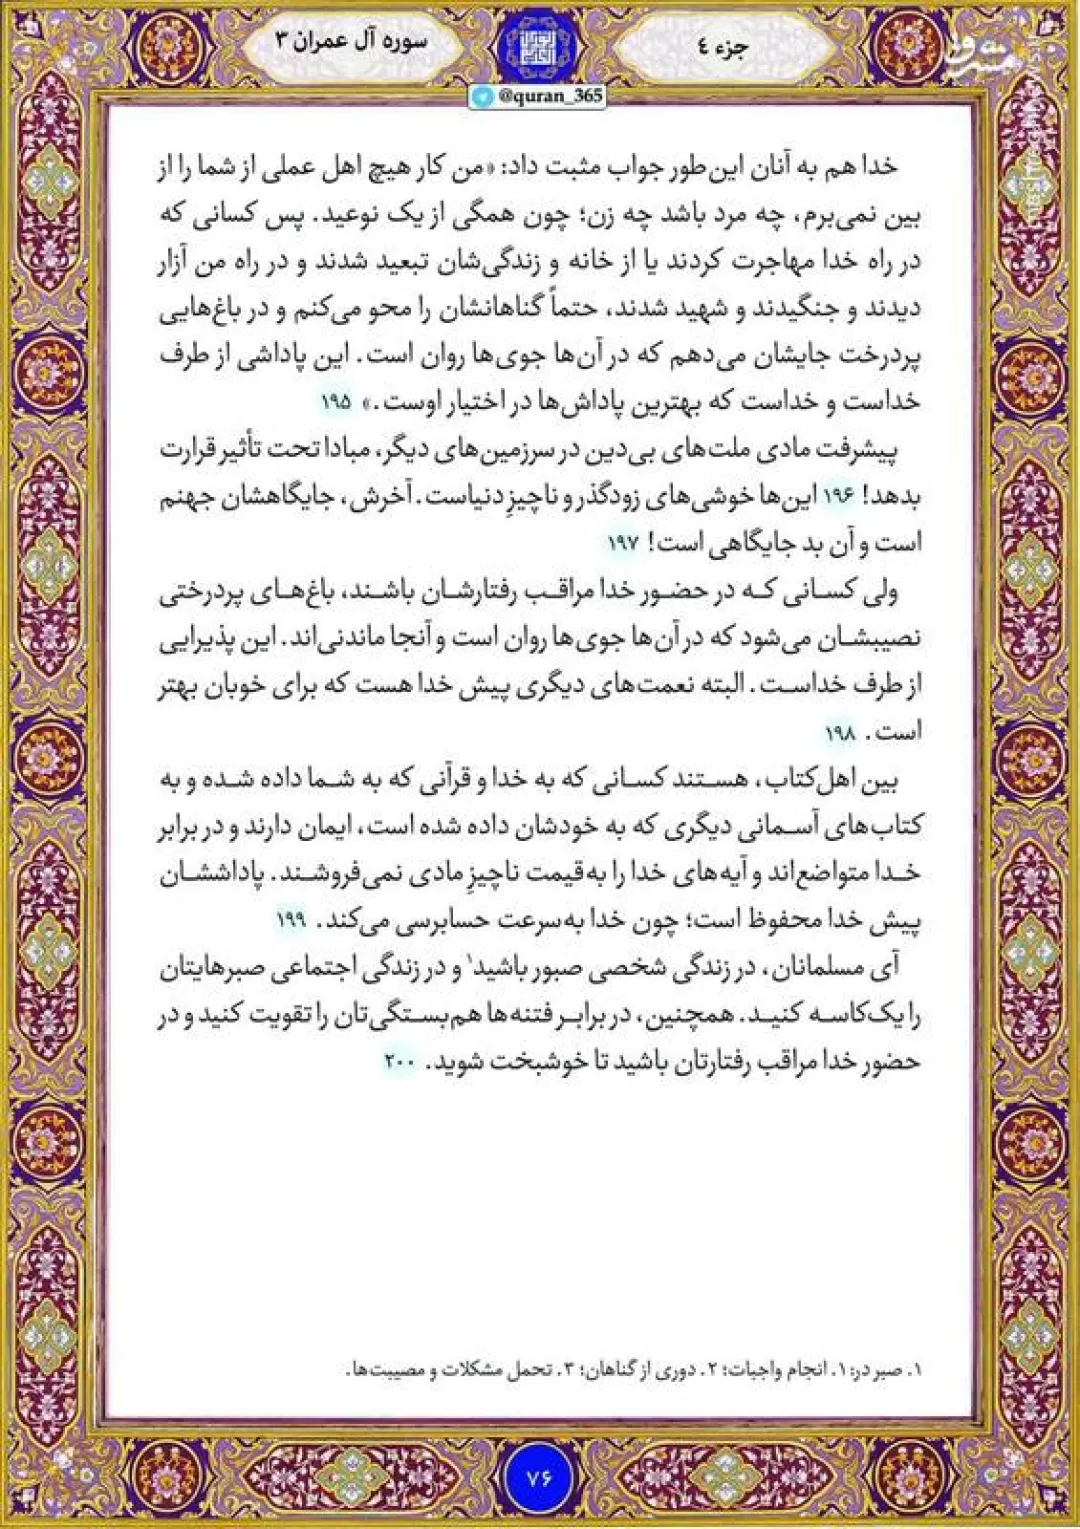 جزء ۴
سوره آل عمران ۳
@quran_365
مشرق
خدا هم به آنان این‌طور جواب مثبت داد: «من کار هیچ اهل عملی از شما را از
بین نمی‌برم، چه مرد باشد چه زن؛ چون همگی از یک نوعید. پس کسانی که
در راه خدا مهاجرت کردند یا از خانه و زندگی‌شان تبعید شدند و در راه من آزار
دیدند و جنگیدند و شهید شدند، حتماً گناهانشان را محو می‌کنم و در باغ‌هایی
پردرخت جایشان می‌دهم که در آن‌ها جوی‌ها روان است. این پاداشی از طرف
خداست و خداست که بهترین پاداش‌ها در اختیار اوست.» ۱۹۵
پیشرفت مادی ملت‌های بی‌دین در سرزمین‌های دیگر، مبادا تحت تأثیر قرارت
بدهد! ۱۹۶ این‌ها خوشی‌های زودگذر و ناچیزِ دنیاست. آخرش، جایگاهشان جهنم
است و آن بد جایگاهی است! ۱۹۷
ولی کسانی که در حضور خدا مراقب رفتارشان باشند، باغ‌های پردرختی
نصیبشان می‌شود که در آن‌ها جوی‌ها روان است و آنجا ماندنی‌اند. این پذیرایی
از طرف خداست. البته نعمت‌های دیگری پیش خدا هست که برای خوبان بهتر
است. ۱۹۸
بین اهل‌کتاب، هستند کسانی که به خدا و قرآنی که به شما داده شده و به
کتاب‌های آسمانی دیگری که به خودشان داده شده است، ایمان دارند و در برابر
خدا متواضع‌اند و آیه‌های خدا را به‌قیمت ناچیزِ مادی نمی‌فروشند. پاداششان
پیش خدا محفوظ است؛ چون خدا به‌سرعت حسابرسی می‌کند. ۱۹۹
آی مسلمانان، در زندگی شخصی صبور باشید۱ و در زندگی اجتماعی صبرهایتان
را یک‌کاسه کنید. همچنین، در برابر فتنه‌ها هم‌بستگی‌تان را تقویت کنید و در
حضور خدا مراقب رفتارتان باشید تا خوشبخت شوید. ۲۰۰
۱. صبر در: ۱. انجام واجبات؛ ۲. دوری از گناهان؛ ۳. تحمل مشکلات و مصیبت‌ها.
۷۶